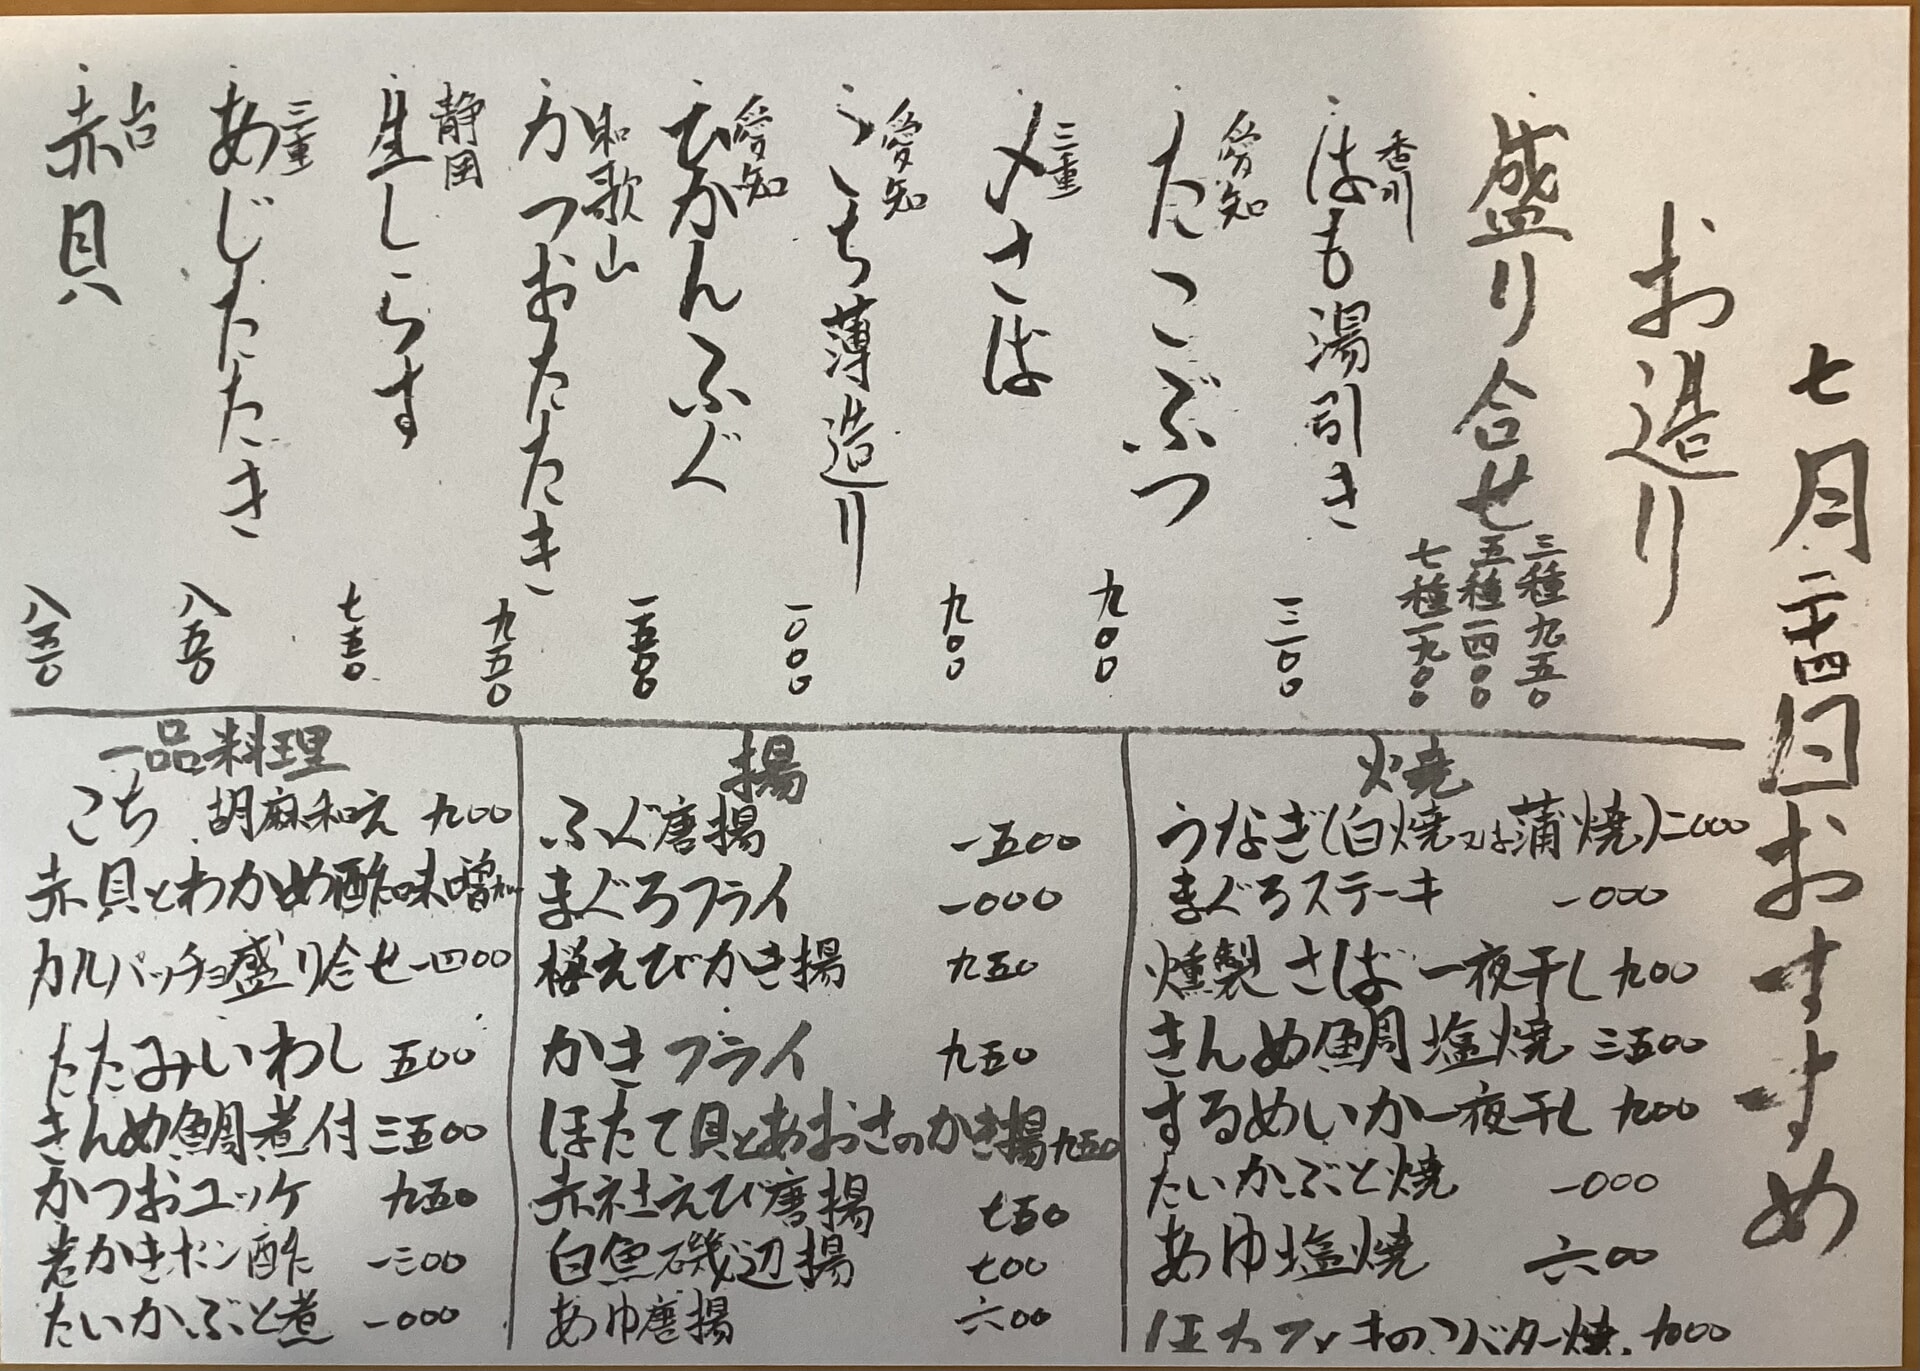 七月二十四日おすすめ
お造り
盛り合せ
三種九五〇
五種一四〇〇
七種一九〇〇
香川
はも湯引き 一三〇〇
愛知
たこぶつ 九〇〇
三重
〆さば 九〇〇
愛知
こち薄造り 一〇〇〇
愛知
ひがんふぐ 一五〇〇
和歌山
かつおたたき 九五〇
静岡
生しらす 七五〇
三重
あじたたき 八五〇
赤貝 八五〇
焼
うなぎ(白焼又は蒲焼)二〇〇〇
まぐろステーキ 一〇〇〇
燻製さば一夜干し 九〇〇
きんめ鯛塩焼 三五〇〇
するめいか一夜干し 九〇〇
たいかぶと焼 一〇〇〇
あゆ塩焼 六〇〇
バター焼 九〇〇
揚
ふぐ唐揚 一五〇〇
まぐろフライ 一〇〇〇
桜えびかき揚 九五〇
かきフライ 九五〇
ほたて貝とあおさのかき揚 九五〇
赤社えび唐揚 七五〇
白魚磯辺揚 七〇〇
あゆ唐揚 六〇〇
一品料理
こち 胡麻和え 九〇〇
赤貝とわかめ酢味噌
カルパッチョ盛り合せ 一四〇〇
たたみいわし 五〇〇
きんめ鯛煮付 三五〇〇
かつおユッケ 九五〇
岩かきポン酢 一三〇〇
たいかぶと煮 一〇〇〇